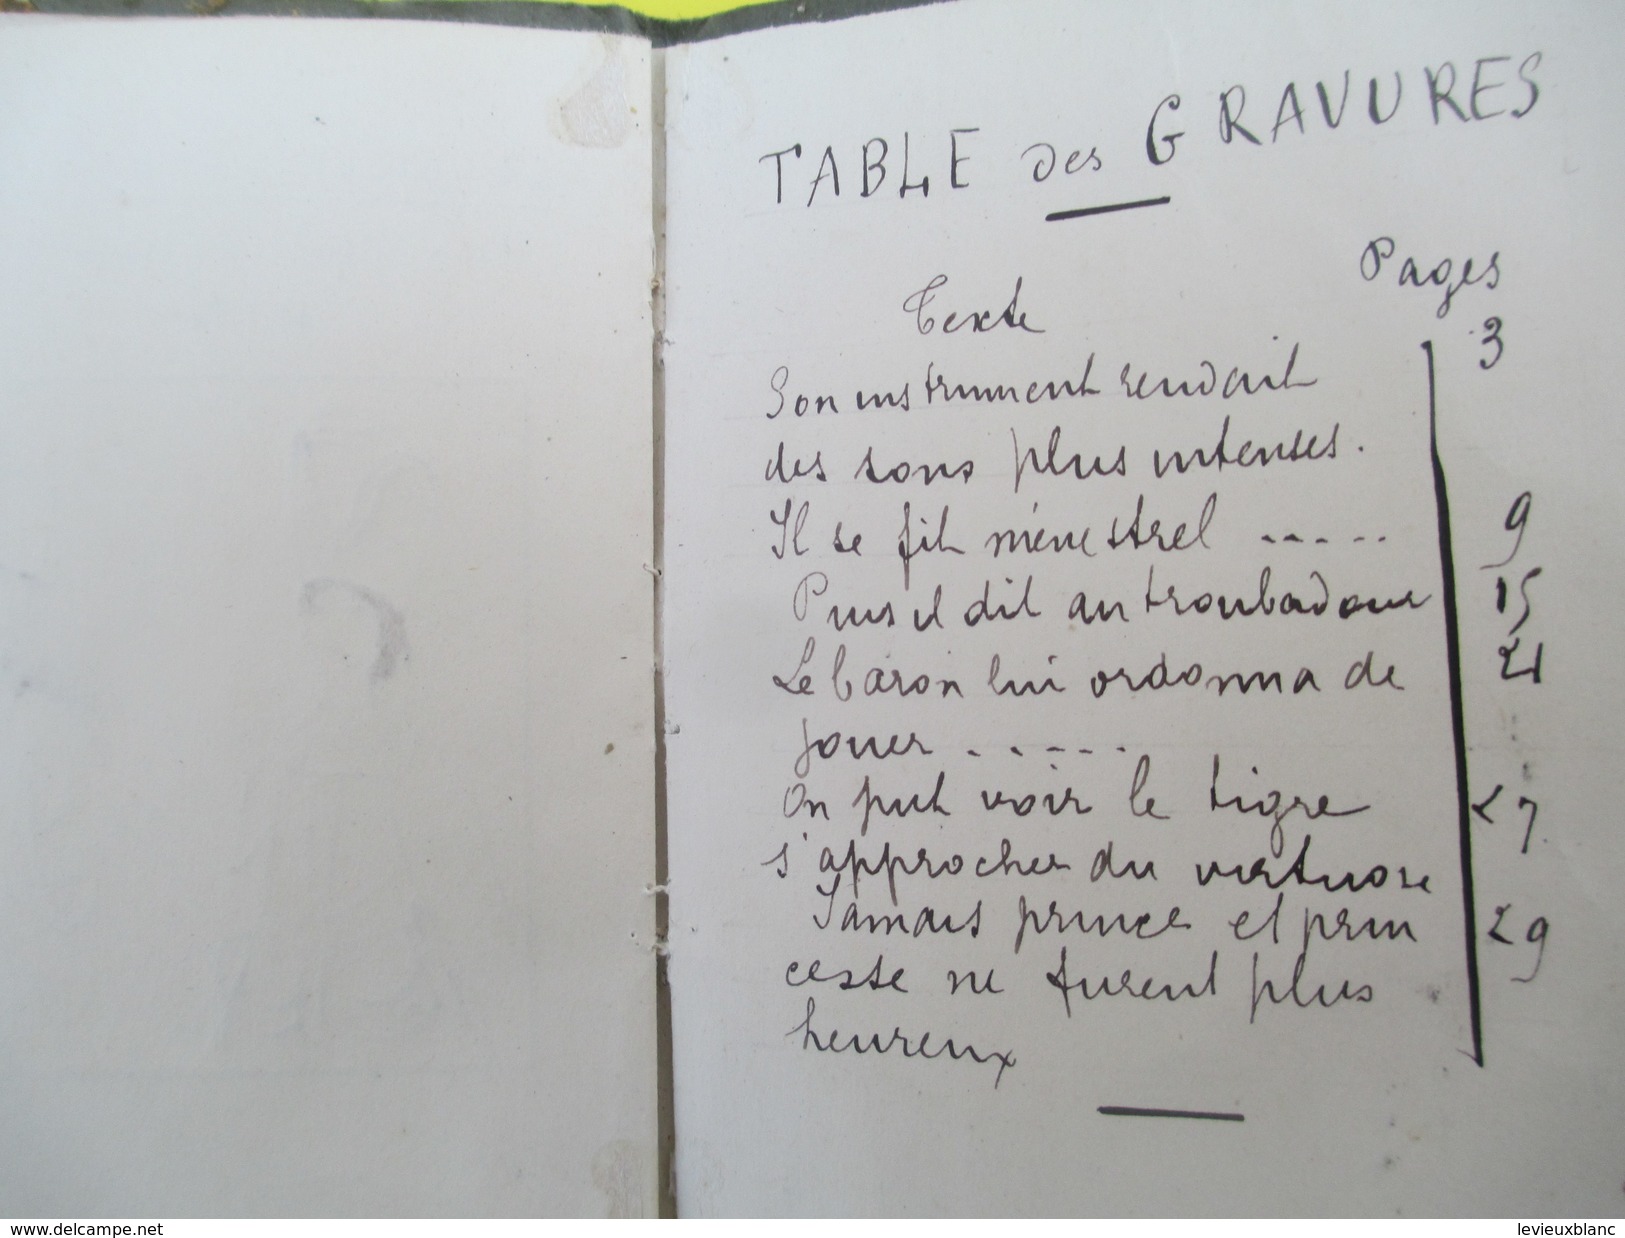 TABLE des GRAVURES
Pages
Texte
3
Son instrument rendait
des sons plus intenses.
Il se fit ménestrel ..... 9
Puis il dit au troubadour 15
Le baron lui ordonna de 21
jouer .....
On put voir le tigre 27
s'approcher du virtuose
Jamais prince et prin 29
cesse ne furent plus
heureux
www.delcampe.net
levieuxblanc